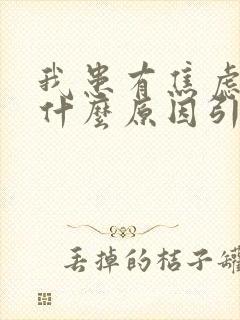 我患有焦虑
什麼原因引
丢掉的桔子罐